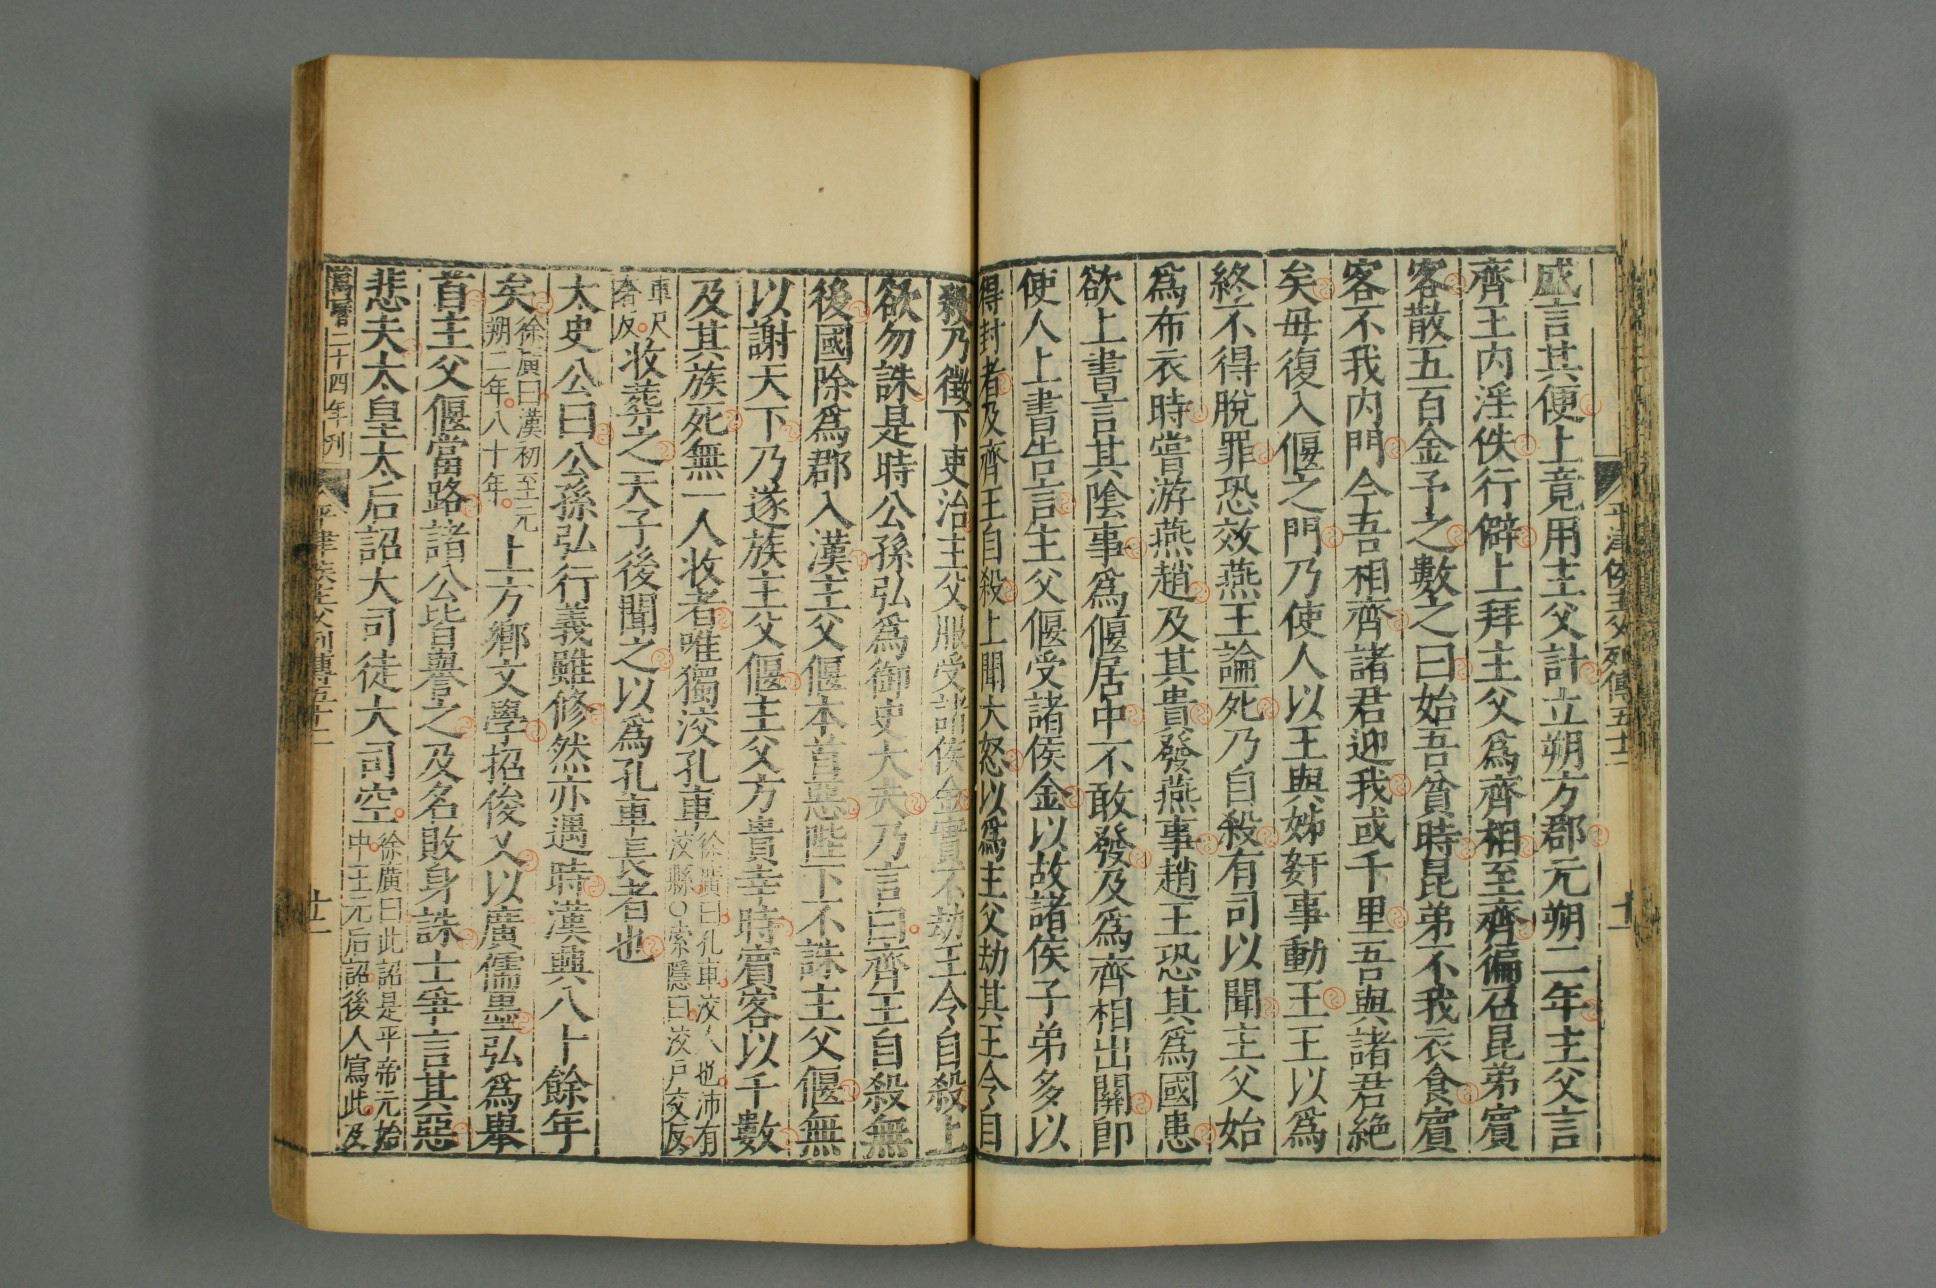 平津侯主父列傳五十二
十一
盛言其便上竟用主父計立朔方郡元朔二年主父言
齊王內淫佚行僻上拜主父爲齊相至齊徧召昆弟賓
客散五百金予之數之曰始吾貧時昆弟不我衣食賓
客不我內門今吾相齊諸君迎我或千里吾與諸君絕
矣毋復入偃之門乃使人以王與姊姧事動王王以爲
終不得脫罪恐效燕王論死乃自殺有司以聞主父始
爲布衣時嘗游燕趙及其貴發燕事趙王恐其爲國患
欲上書言其陰事爲偃居中不敢發及爲齊相出關即
使人上書告言主父偃受諸侯金以故諸侯子弟多以
得封者及齊王自殺上聞大怒以爲主父劫其王令自
殺乃徵下吏治主父服受諸侯金實不劫王令自殺上
欲勿誅是時公孫弘爲御史大夫乃言曰齊王自殺無
後國除爲郡入漢主父偃本首惡陛下不誅主父偃無
以謝天下乃遂族主父偃主父方貴幸時賓客以千數
及其族死無一人收者唯獨洨孔車徐廣曰孔車洨人也沛有
洨縣○索隱曰洨戶交反
車尺
奢反收葬之天子後聞之以爲孔車長者也
太史公曰公孫弘行義雖修然亦遇時漢興八十餘年
矣徐廣曰漢初至元
朔二年八十年上方鄉文學招俊乂以廣儒墨弘爲舉
首主父偃當路諸公皆譽之及名敗身誅士爭言其惡
悲夫太皇太后詔大司徒大司空徐廣曰此詔是平帝元始
中王元后詔後人寫此及
二十四年刊
平津侯主父列傳五十二
十二